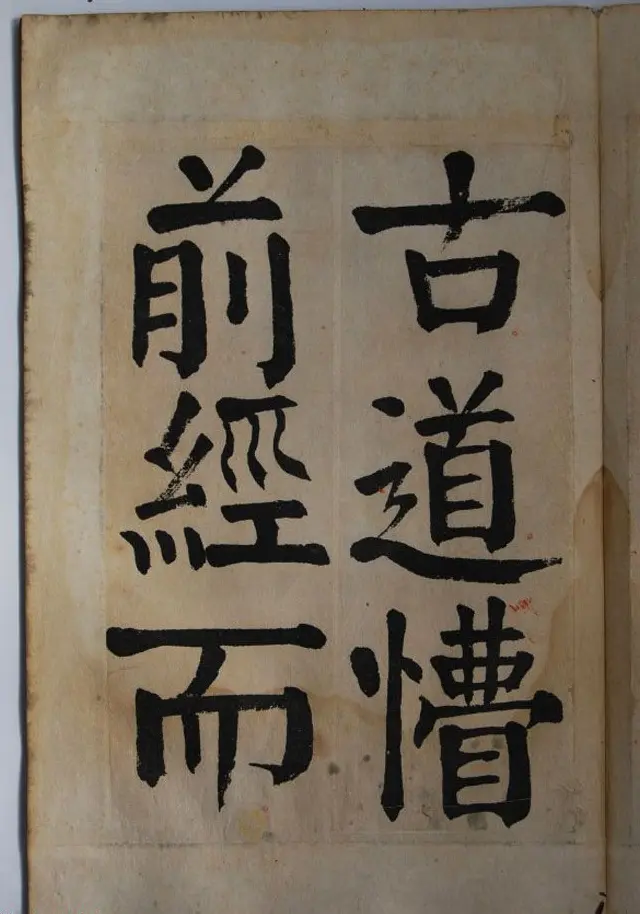 古道懵
前經而